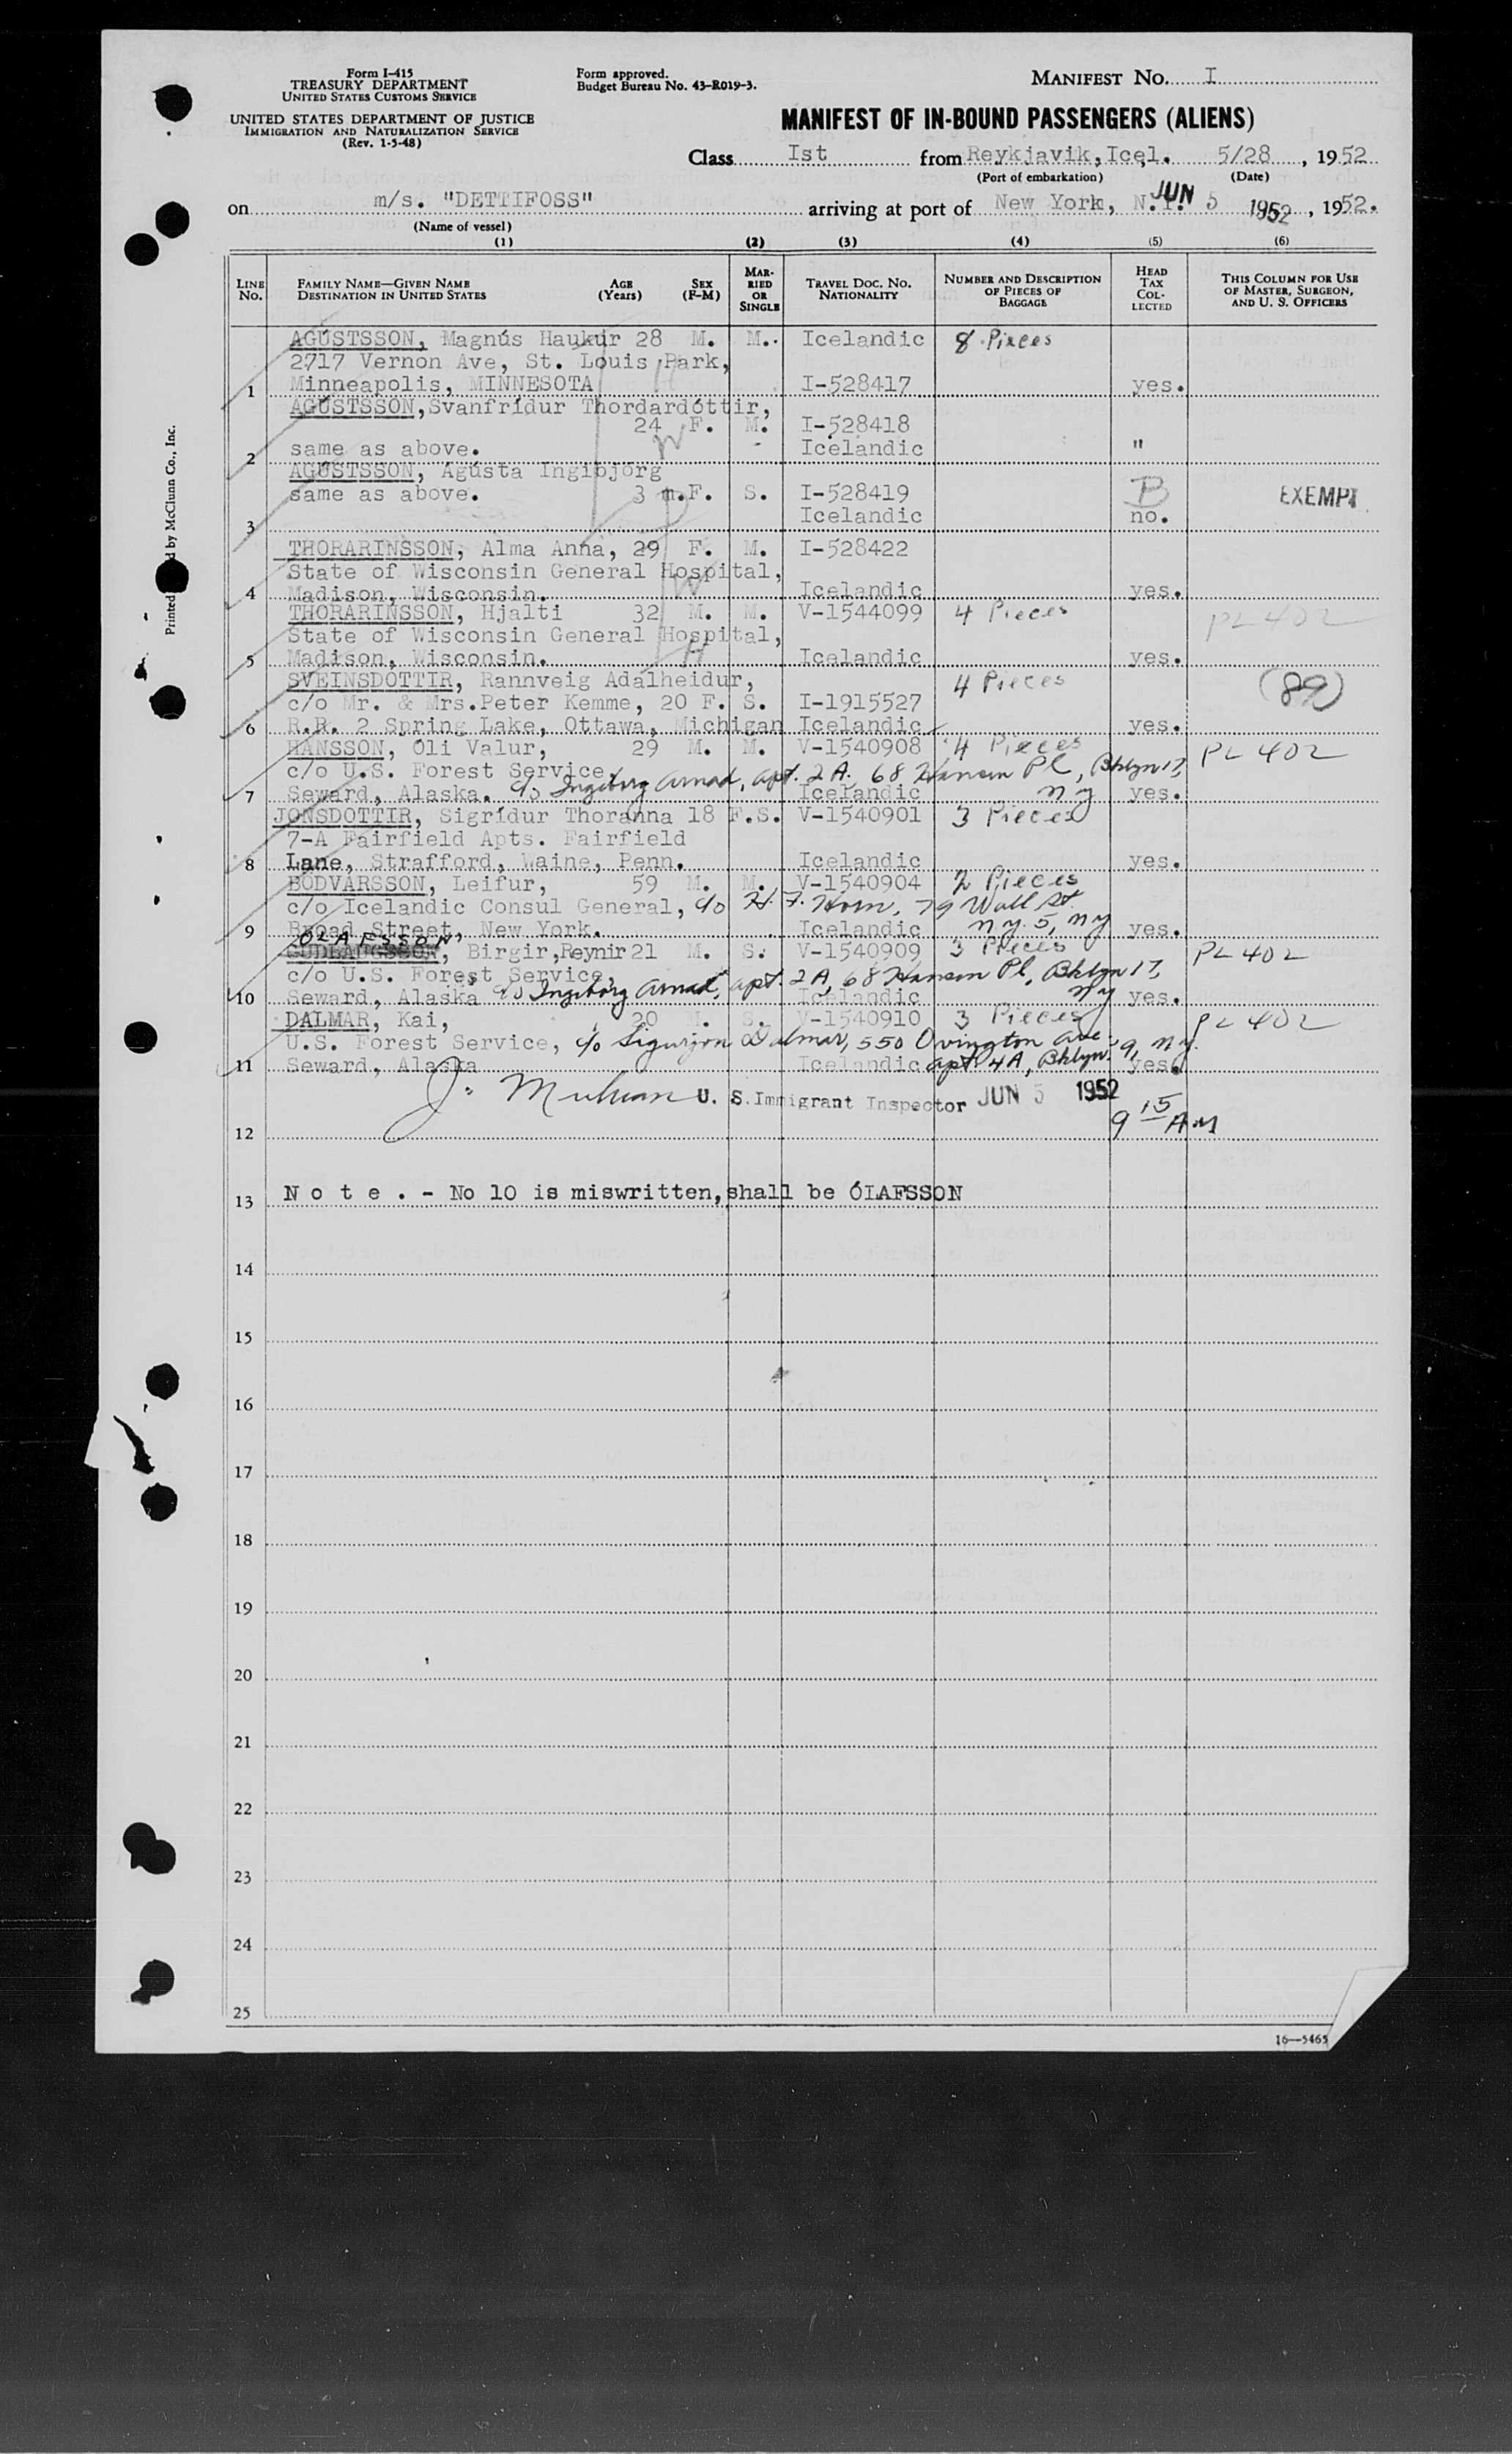 Form I-415
TREASURY DEPARTMENT
UNITED STATES CUSTOMS SERVICE
UNITED STATES DEPARTMENT OF JUSTICE
IMMIGRATION AND NATURALIZATION SERVICE
(Rev. 1-5-48)
Form approved.
Budget Bureau No. 43-R019-3.
MANIFEST NO. I
MANIFEST OF IN-BOUND PASSENGERS (ALIENS)
Class Ist from Reykjavik, Icel. 5/28, 1952
(Port of embarkation) (Date)
on m/s. "DETTIFOSS" arriving at port of New York, N.Y. JUN 5 1952, 1952.
(Name of vessel)
(1) (2) (3) (4) (5) (6)
LINE No. FAMILY NAME—GIVEN NAME DESTINATION IN UNITED STATES AGE (Years) SEX (F-M) MARRIED OR SINGLE TRAVEL DOC. NO. NATIONALITY NUMBER AND DESCRIPTION OF PIECES OF BAGGAGE HEAD TAX COLLECTED THIS COLUMN FOR USE OF MASTER, SURGEON, AND U. S. OFFICERS
AGÚSTSSON, Magnús Haukur 28 M. M. Icelandic 8 Pieces
2717 Vernon Ave, St. Louis Park,
1 Minneapolis, MINNESOTA I-528417 yes.
AGÚSTSSON, Svanfrídur Thordardóttir,
24 F. M. I-528418
2 same as above. Icelandic "
AGÚSTSSON, Agústa Ingibjörg
same as above. 3 m. F. S. I-528419 B EXEMPT
3 Icelandic no.
THORARINSSON, Alma Anna, 29 F. M. I-528422
State of Wisconsin General Hospital,
4 Madison, Wisconsin. Icelandic yes.
THORARINSSON, Hjalti 32 M. M. V-1544099 4 Pieces PL 402
State of Wisconsin General Hospital,
5 Madison, Wisconsin. Icelandic yes.
SVEINSDOTTIR, Rannveig Adalheidur, 4 Pieces (89)
c/o Mr. & Mrs. Peter Kemme, 20 F. S. I-1915527
6 R.R. 2 Spring Lake, Ottawa, Michigan Icelandic yes.
HANSSON, Oli Valur, 29 M. M. V-1540908 4 Pieces PL 402
c/o U.S. Forest Service, c/o Ingeborg Arnad, apt. 2A, 68 Hanson Pl, Bklyn 17, NY
7 Seward, Alaska. Icelandic yes.
JONSDOTTIR, Sigrídur Thoranna 18 F. S. V-1540901 3 Pieces
7-A Fairfield Apts. Fairfield
8 Lane, Strafford, Waine, Penn. Icelandic yes.
BODVARSSON, Leifur, 59 M. M. V-1540904 2 Pieces
c/o Icelandic Consul General, c/o H. F. Horn, 79 Wall St
9 Broad Street, New York. Icelandic N.Y. 5, NY yes.
OLAFSSON,
GUDLAUGSSON, Birgir, Reynir 21 M. S. V-1540909 3 Pieces PL 402
c/o U.S. Forest Service,
10 Seward, Alaska c/o Ingeborg Arnad, apt. 2A, 68 Hanson Pl, Bklyn 17, NY Icelandic yes.
DALMAR, Kai, 20 M. S. V-1540910 3 Pieces PL 402
U.S. Forest Service, c/o Sigurjon Dalmar, 550 Ovington Ave
11 Seward, Alaska Icelandic apt 4A, Bklyn. 9, NY. yes.
U. S. Immigrant Inspector JUN 5 1952
12 9 15 AM
13 N o t e . - No 10 is miswritten, shall be ÓLAFSSON
14
15
16
17
18
19
20
21
22
23
24
25
16—5465